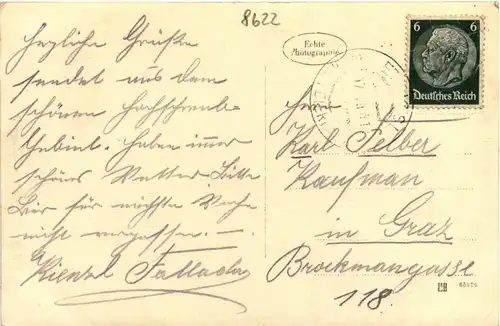 8622
Herzliche Grüße
sendet aus dem
schönen Hochschwab-
Gebiet. Haben immer
schönes Wetter. Bitte
Bier für nächste Woche
nicht vergessen. —
Kienzl
Echte
Photographie
6 6
Deutsches Reich
Herrn
Karl Felber
Kaufman
in Graz
Brockmangasse
118.